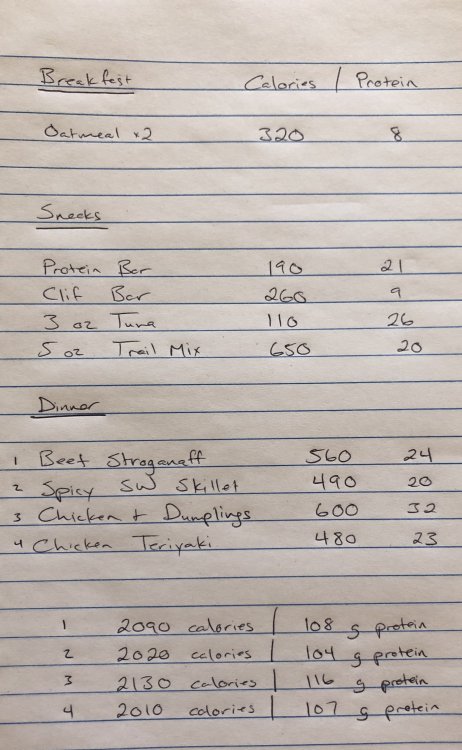 Breakfast Calories / Protein
Oatmeal x2 320 8
Snacks
Protein Bar 190 21
Clif Bar 260 9
3 oz Tuna 110 26
5 oz Trail Mix 650 20
Dinner
1 Beef Stroganaff 560 24
2 Spicy SW Skillet 490 20
3 Chicken + Dumplings 600 32
4 Chicken Teriyaki 480 23
1 2090 calories | 108 g protein
2 2020 calories | 104 g protein
3 2130 calories | 116 g protein
4 2010 calories | 107 g protein